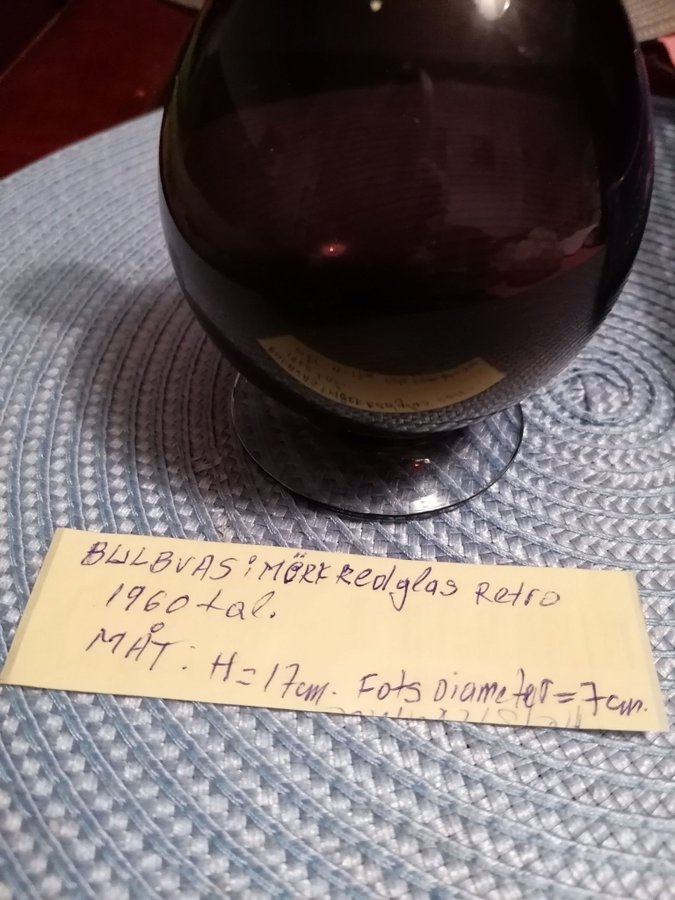 BULBVAS i MÖRK Redglas Retro
1960 tal.
MÅT: H=17cm. Fots Diameter=7cm.